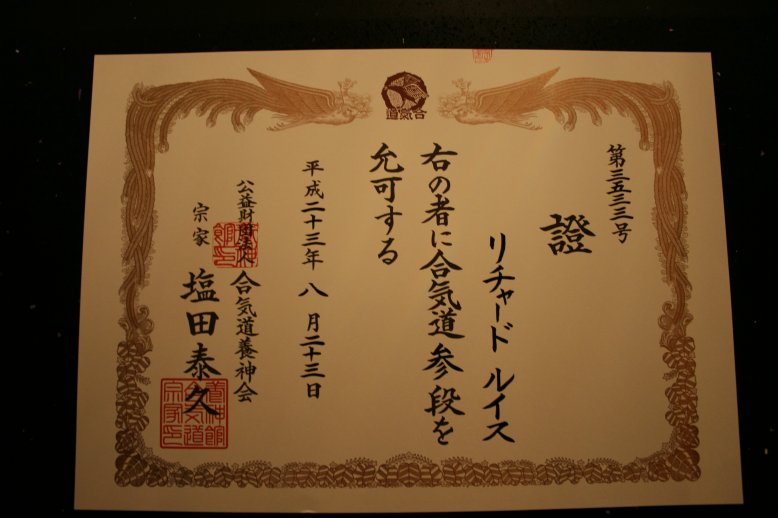 道氣合
第三五三三号
證
リチャード ルイス
右の者に合気道参段を
允可する
平成二十三年 八 月二十三日
公益財団法人 合気道養神会
宗家 塩田泰久